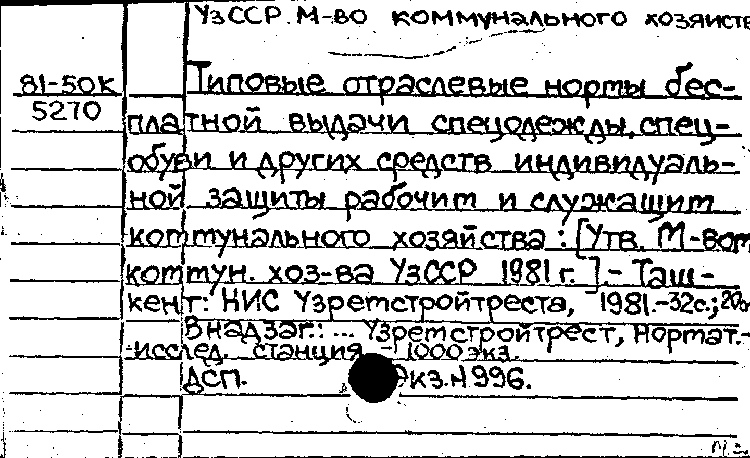 УзССР. М-во коммунального хозяйств
81-50К Типовые отраслевые нормы бес-
5270
платной выдачи спецодежды, спец-
обуви и других средств индивидуаль-
ной защиты рабочим и служащим
коммунального хозяйства : [Утв. М-вом
коммун. хоз-ва УзССР 1981 г.].- Таш-
кент: НИС Узремстройтреста, 1981.-32с.; 20см
В надзаг.: ... Узремстройтрест, Нормат.-
-исслед. станция - 1000 экз.
ДСП. Экз. N 996.